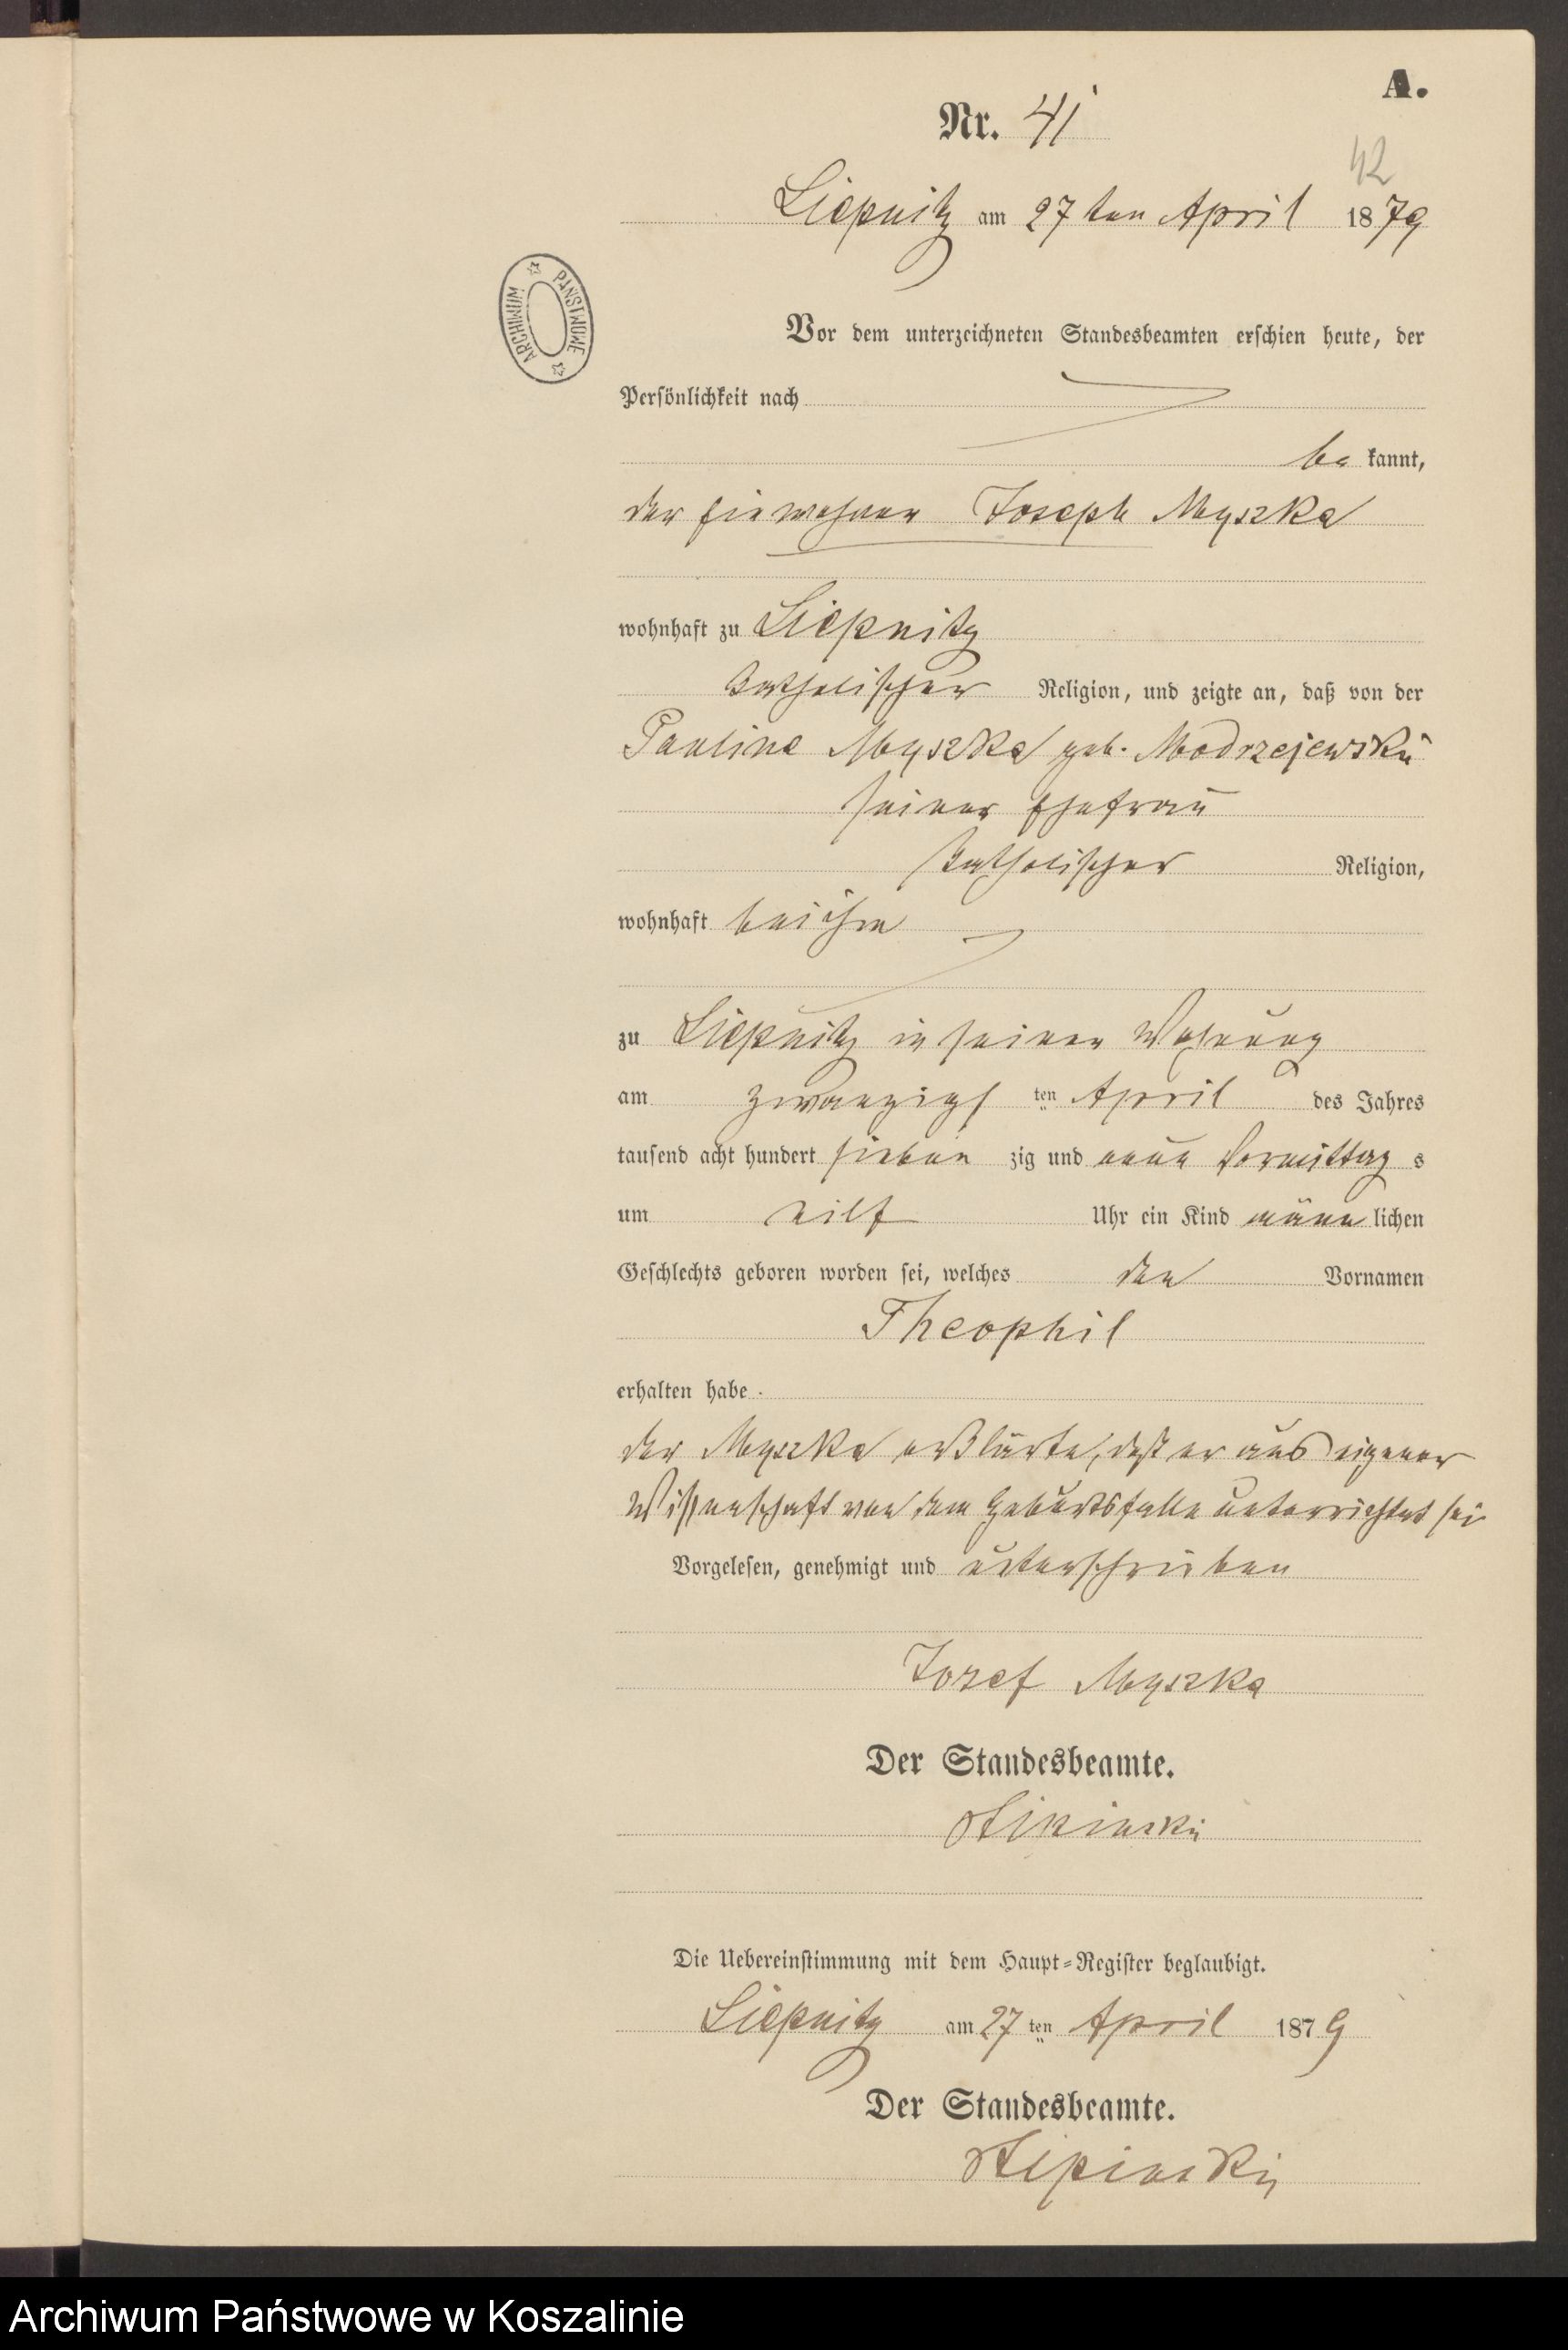 A.
Nr. 41
42
Liepnitz am 27ten April 1879
ARCHIWUM PAŃSTWOWE
Vor dem unterzeichneten Standesbeamten erschien heute, der
Persönlichkeit nach
bekannt,
der Einwohner Joseph Myszka
wohnhaft zu Liepnitz
katholischer Religion, und zeigte an, daß von der
Pauline Myszka geb. Modrzejewski
seiner Ehefrau
katholischer Religion,
wohnhaft bei ihm
zu Liepnitz in seiner Wohnung
am zwanzigsten April des Jahres
tausend acht hundert siebenzig und neun Vormittags
um eilf Uhr ein Kind männlichen
Geschlechts geboren worden sei, welches den Vornamen
Theophil
erhalten habe.
der Myszka erklärte, daß er aus eigener
Wissenschaft von dem Geburtsfalle unterrichtet sei
Vorgelesen, genehmigt und unterschrieben
Jozef Myszka
Der Standesbeamte.
Die Uebereinstimmung mit dem Haupt-Register beglaubigt.
Liepnitz am 27ten April 1879
Der Standesbeamte.
Archiwum Państwowe w Koszalinie